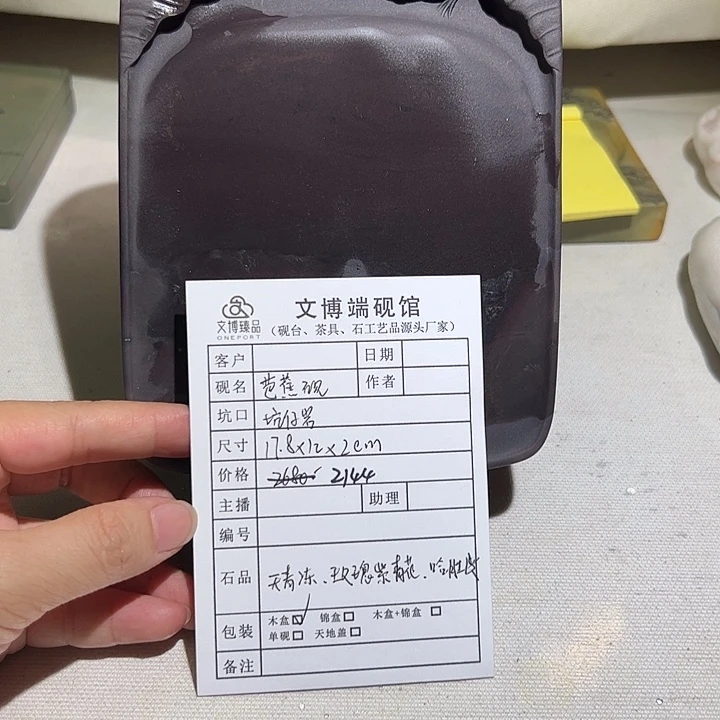 文博臻品
ONEPORT
文博端砚馆
（砚台、茶具、石工艺品源头厂家）
客户 日期
砚名 芭蕉砚 作者
坑口 坑仔岩
尺寸 17.8×12×2cm
价格 2680 2144
主播 助理
编号
石品 天青冻、玫瑰紫青花、哈肚皮
包装 木盒☑ 锦盒□ 木盒+锦盒□
单砚□ 天地盖□
备注